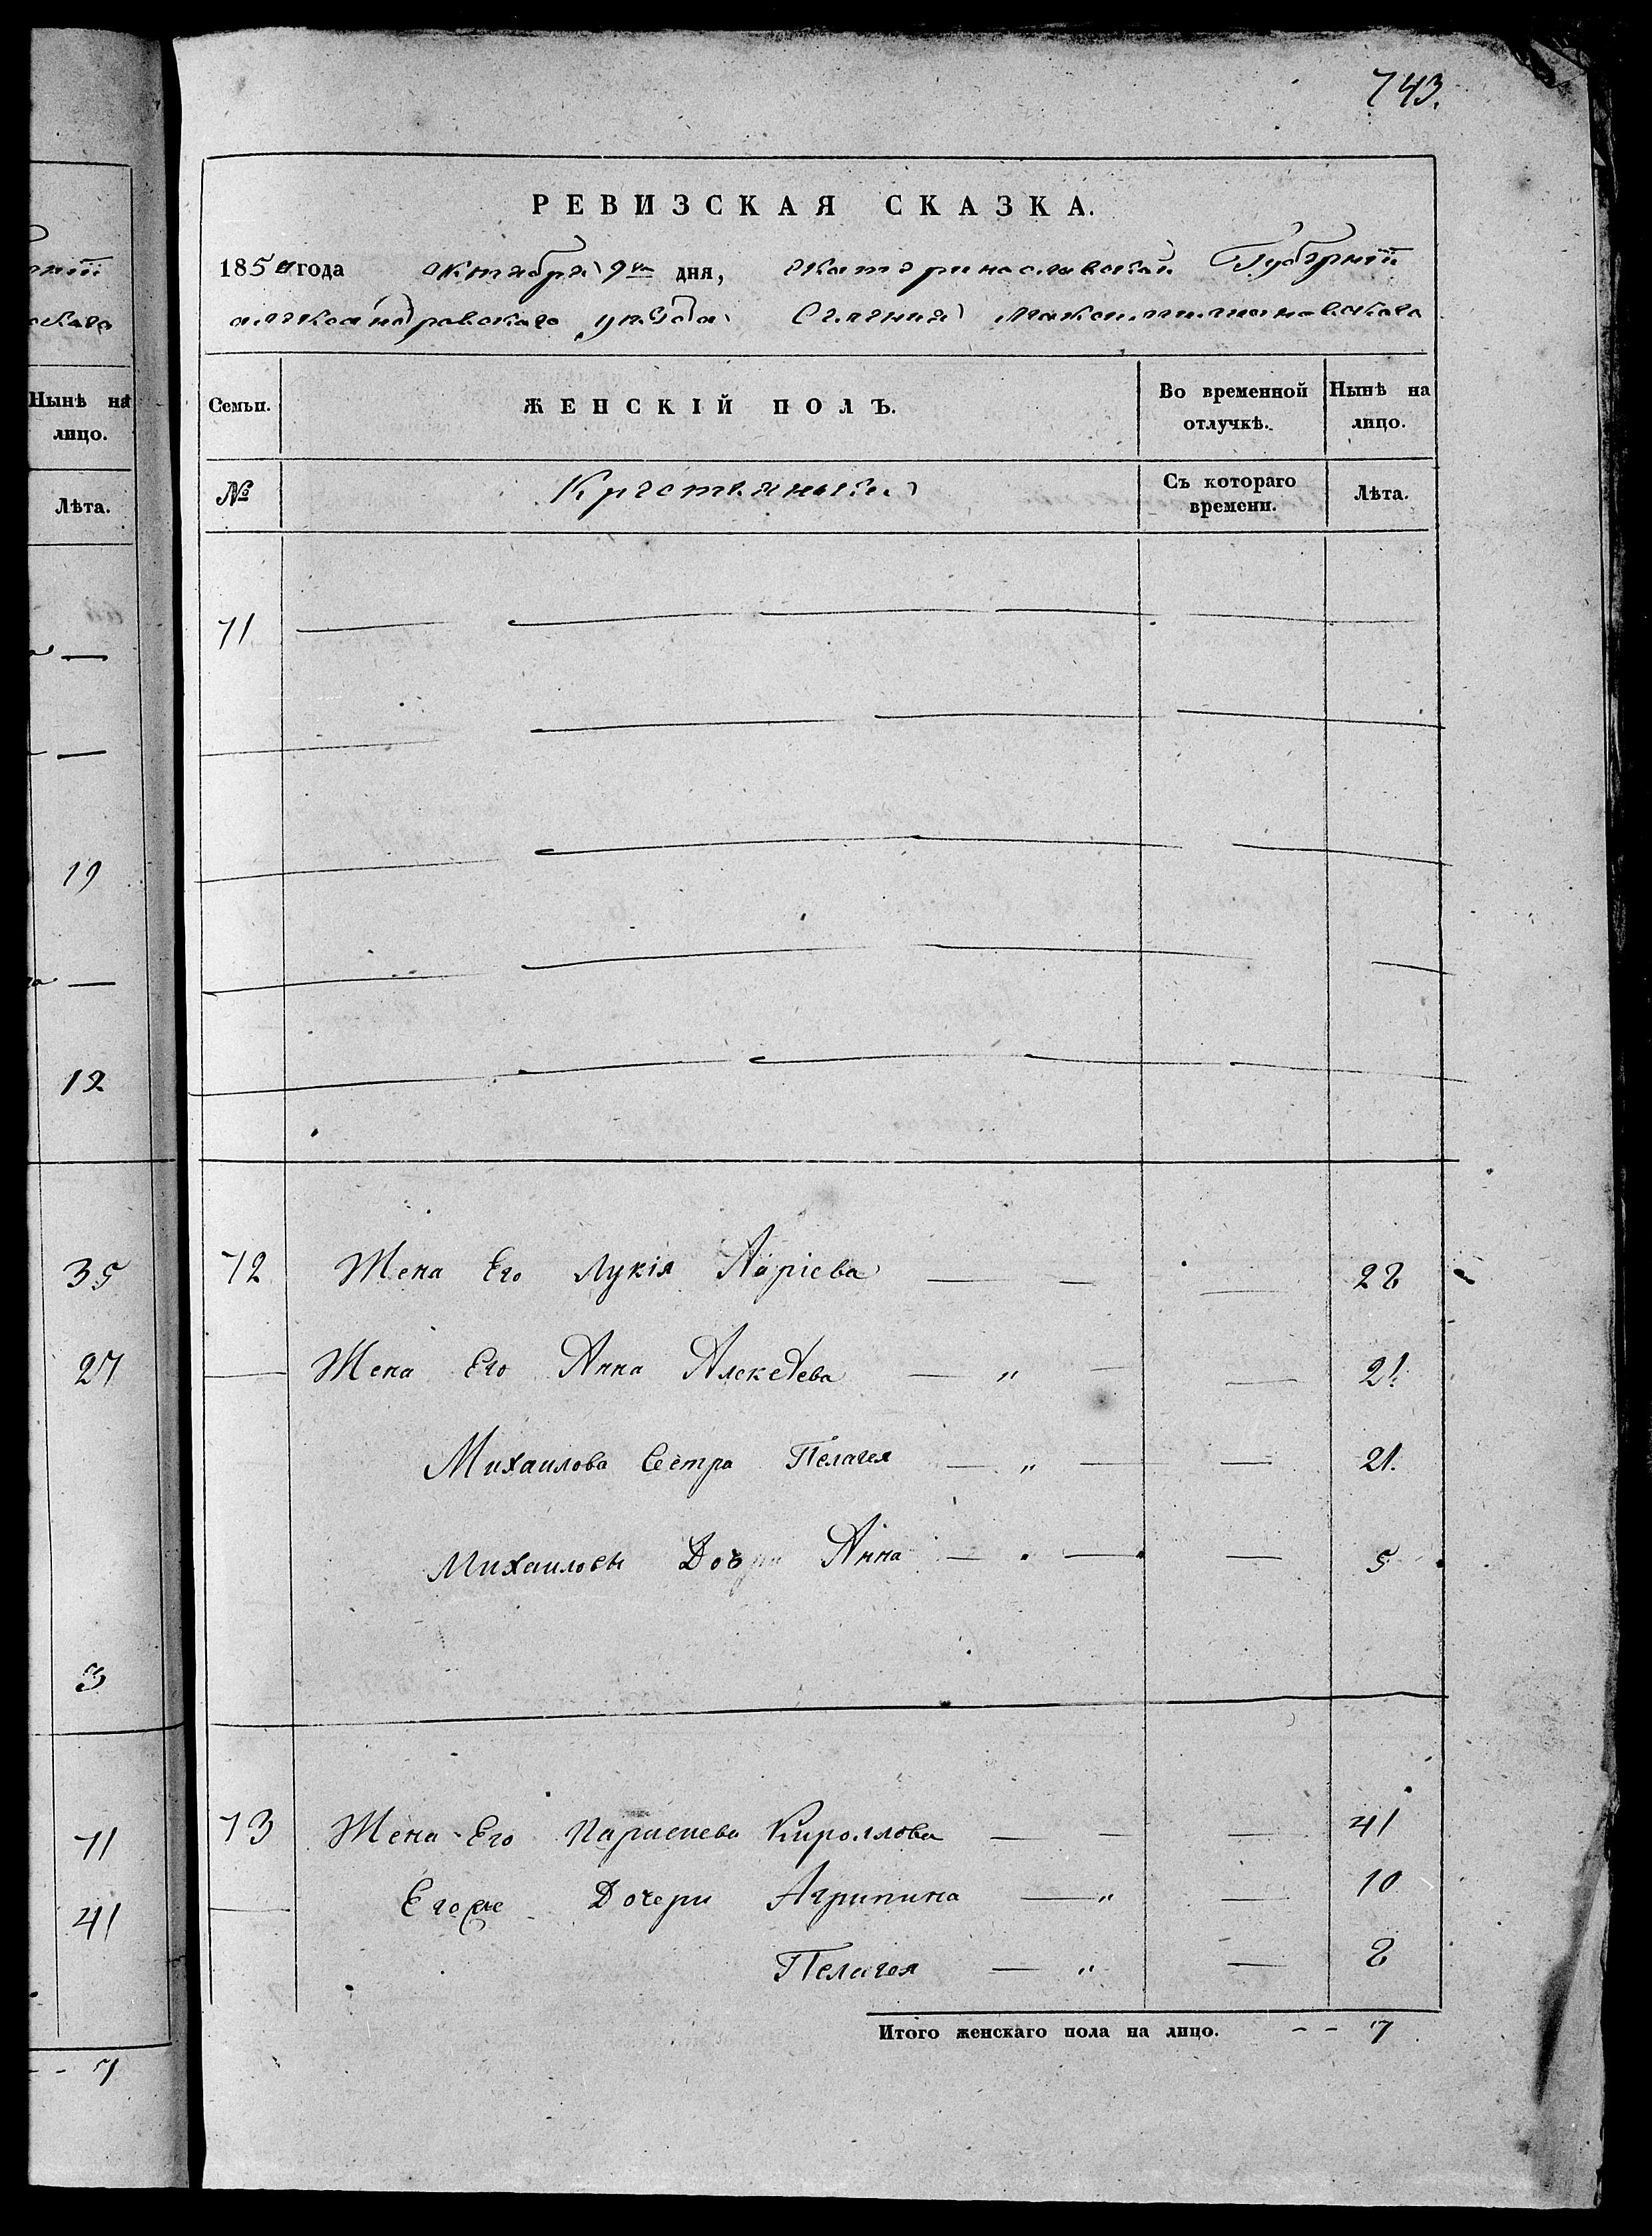 743.
РЕВИЗСКАЯ СКАЗКА.
1850 года октября 9го дня, екатеринославской Губернии
александровского уезда Селения
Семьи. ЖЕНСКІЙ ПОЛЪ. Во временной отлучкѣ. Нынѣ на лицо.
№ Крестьяньки Съ котораго времени. Лѣта.
71
72 Жена Его Лукія — — — 28
Жена Его Анна Алексѣева — " — — 21
Михаилова Сестра Пелагея — " — — 21.
Михаиловы Дочь Анна — — — 5
73 Жена Его Кирыллова — — — 41
Егоже Дочери Агрипина — " — 10
Пелагея — " — 8
Итого женскаго пола на лицо. - - 7
Нынѣ на
лицо.
Лѣта.
—
—
19
—
12
35
27
3
71
41
- - 7